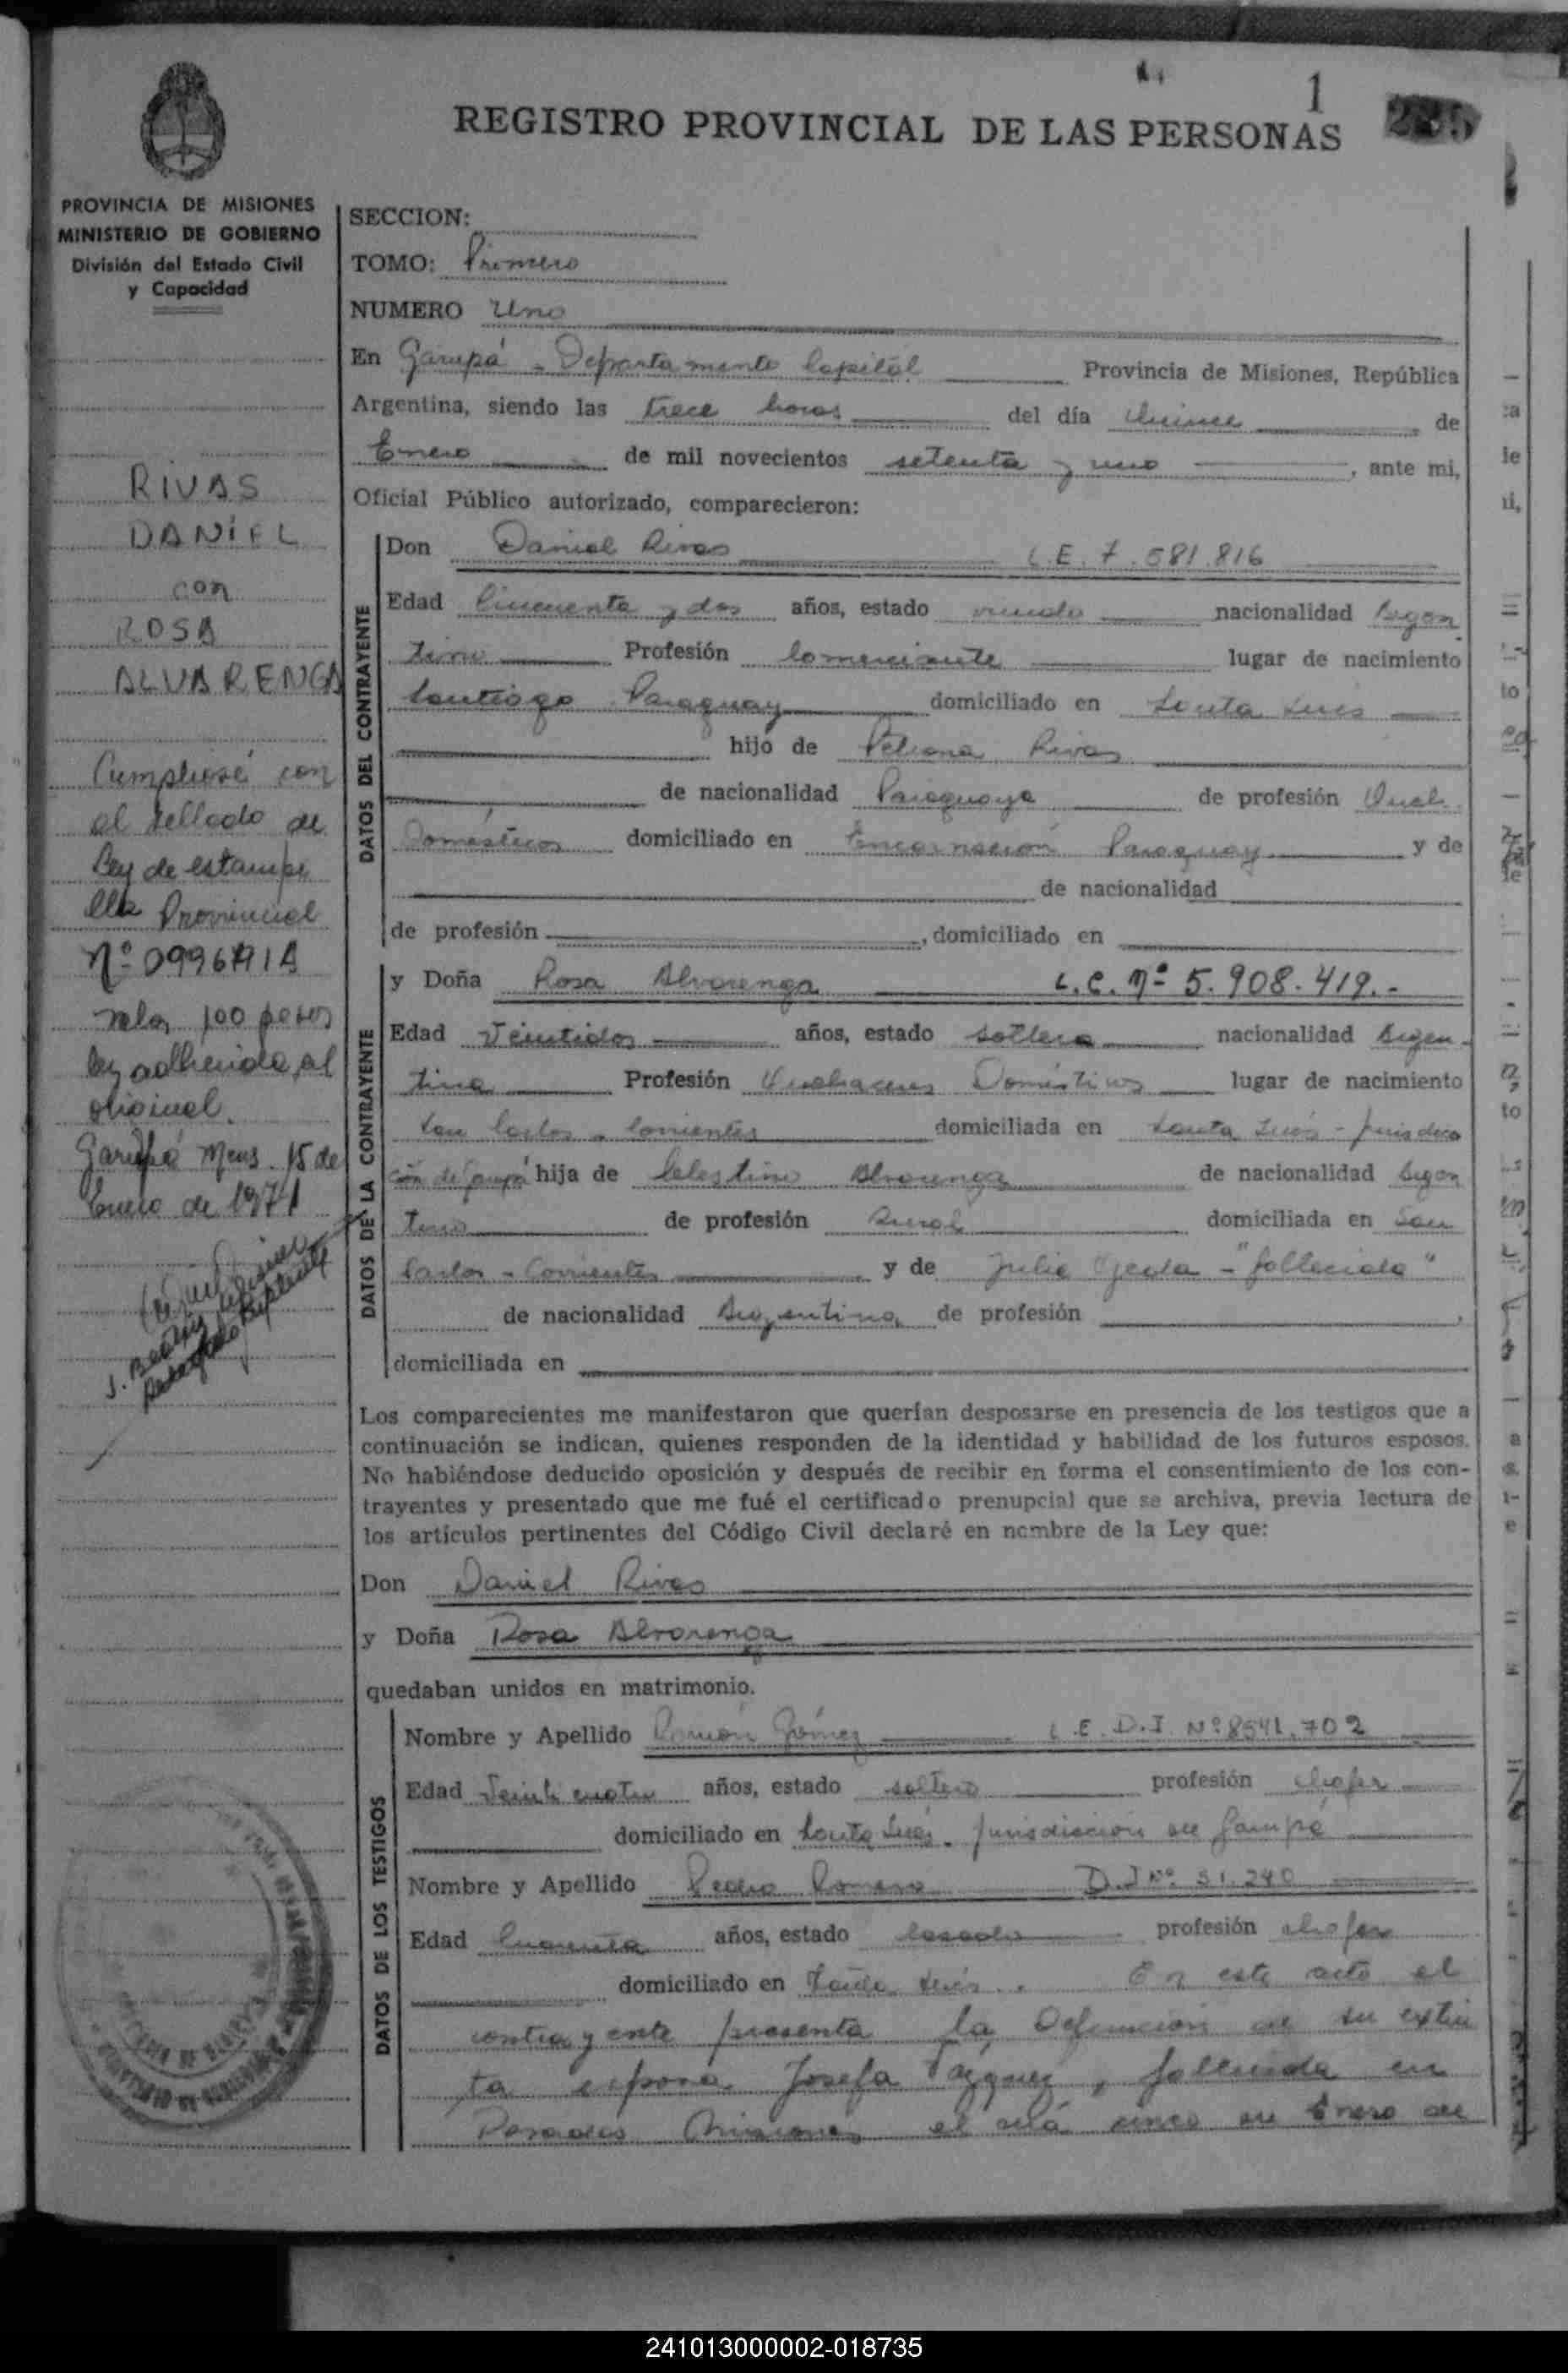 1
REGISTRO PROVINCIAL DE LAS PERSONAS
PROVINCIA DE MISIONES
MINISTERIO DE GOBIERNO
División del Estado Civil
y Capacidad
RIVAS
DANIEL
con
ROSA
ALVARENGA
Cumpliose con
el sellado de
Ley de estampi
lla Provincial
Nº
valor 100 pesos
ley adherida al
original.
Garupá Mnes. 15 de
Enero de 1971
SECCION:
TOMO: Primero
NUMERO Uno
En Garupá - Departamento Capital Provincia de Misiones, República
Argentina, siendo las trece horas del día Quince de
Enero de mil novecientos setenta y uno, ante mi,
Oficial Público autorizado, comparecieron:
DATOS DEL CONTRAYENTE
Don Daniel Rivas L.E. 7.581.816
Edad Cincuenta y dos años, estado viudo nacionalidad Argen
tino Profesión Comerciante lugar de nacimiento
Santiago Paraguay domiciliado en Santa Inés
hijo de Rivas
de nacionalidad Paraguaya de profesión Queh.
Domésticos domiciliado en Encarnación Paraguay y de
de nacionalidad
de profesión , domiciliado en
DATOS DE LA CONTRAYENTE
y Doña Rosa Alvarenga L.C. Nº 5.908.419.-
Edad Veintidos años, estado soltera nacionalidad Argen-
tina Profesión Quehaceres Domésticos lugar de nacimiento
San Carlos - Corrientes domiciliada en Santa Inés - jurisdic
ción de Garupá hija de Celestino Alvarenga de nacionalidad Argen
tino de profesión Rural domiciliada en San
Carlos - Corrientes y de Julia Ojeda - "fallecida"
de nacionalidad Argentina de profesión
domiciliada en
Los comparecientes me manifestaron que querían desposarse en presencia de los testigos que a
continuación se indican, quienes responden de la identidad y habilidad de los futuros esposos.
No habiéndose deducido oposición y después de recibir en forma el consentimiento de los con-
trayentes y presentado que me fué el certificado prenupcial que se archiva, previa lectura de
los artículos pertinentes del Código Civil declaré en nombre de la Ley que:
Don Daniel Rivas
y Doña Rosa Alvarenga
quedaban unidos en matrimonio.
DATOS DE LOS TESTIGOS
Nombre y Apellido Ramón Gómez L.E. D.I. Nº 8541.702
Edad Veinticuatro años, estado soltero profesión chofer
domiciliado en Santa Inés. jurisdicción de Garupá
Nombre y Apellido Pedro Romero D.I Nº 51.240
Edad Cuarenta años, estado casado profesión chofer
domiciliado en Santa Inés.. En este acto el
contrayente presenta la Defunción de su extin
ta esposa Josefa , fallecida en
Posadas Misiones el día cinco de Enero de
241013000002-018735